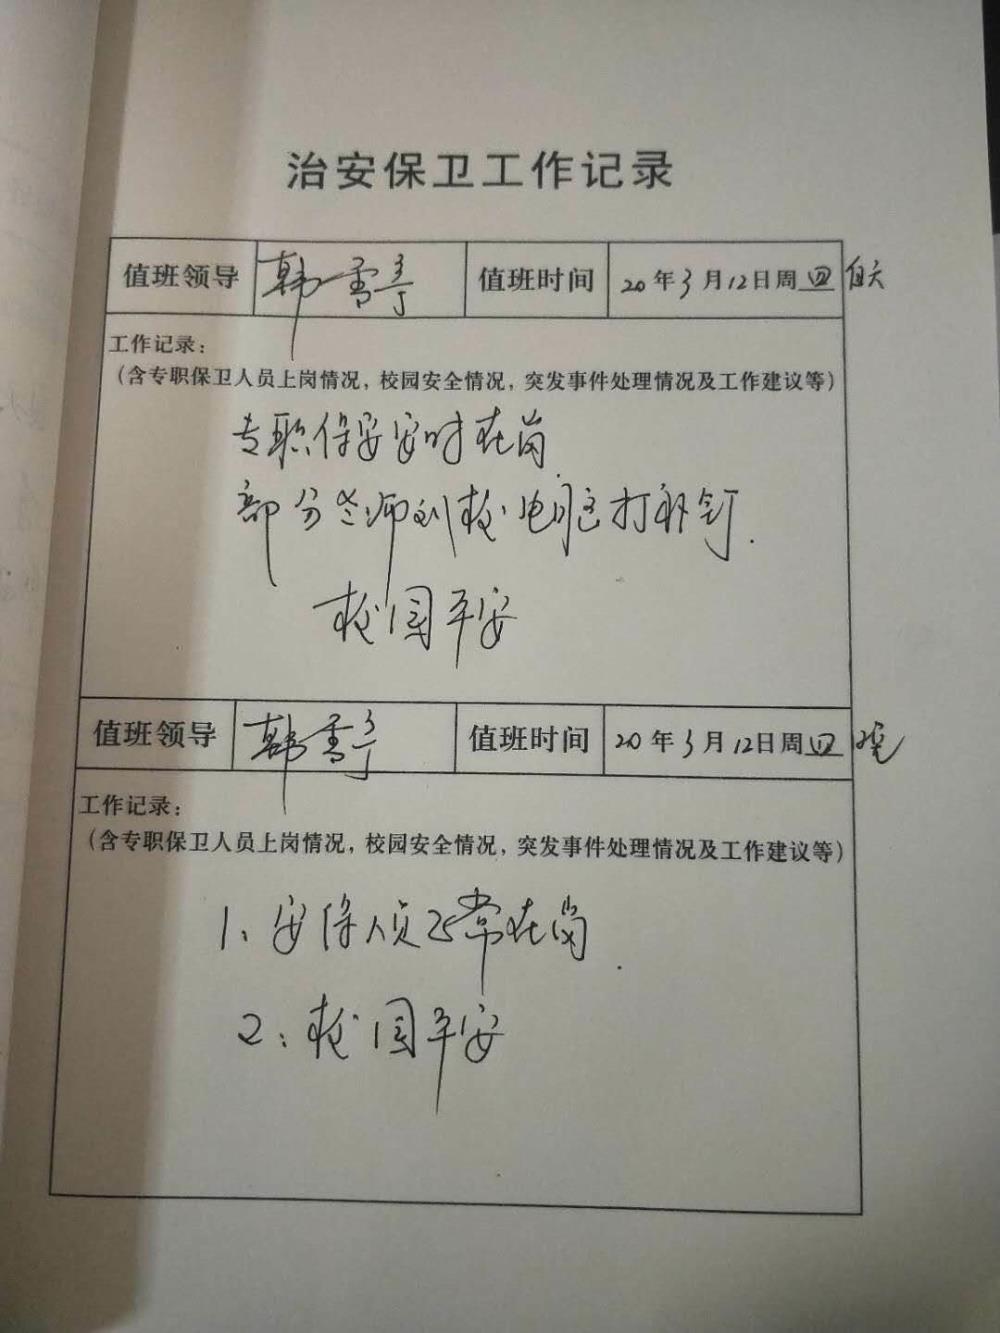 治安保卫工作记录
值班领导 韩雪 值班时间 20年3月12日周四 白天
工作记录：
（含专职保卫人员上岗情况，校园安全情况，突发事件处理情况及工作建议等）
专职保安安时在岗
部分老师到校电脑打补钉.
校园平安
值班领导 韩雪 值班时间 20年3月12日周四 晚
工作记录：
（含专职保卫人员上岗情况，校园安全情况，突发事件处理情况及工作建议等）
1、安保人员正常在岗.
2：校园平安